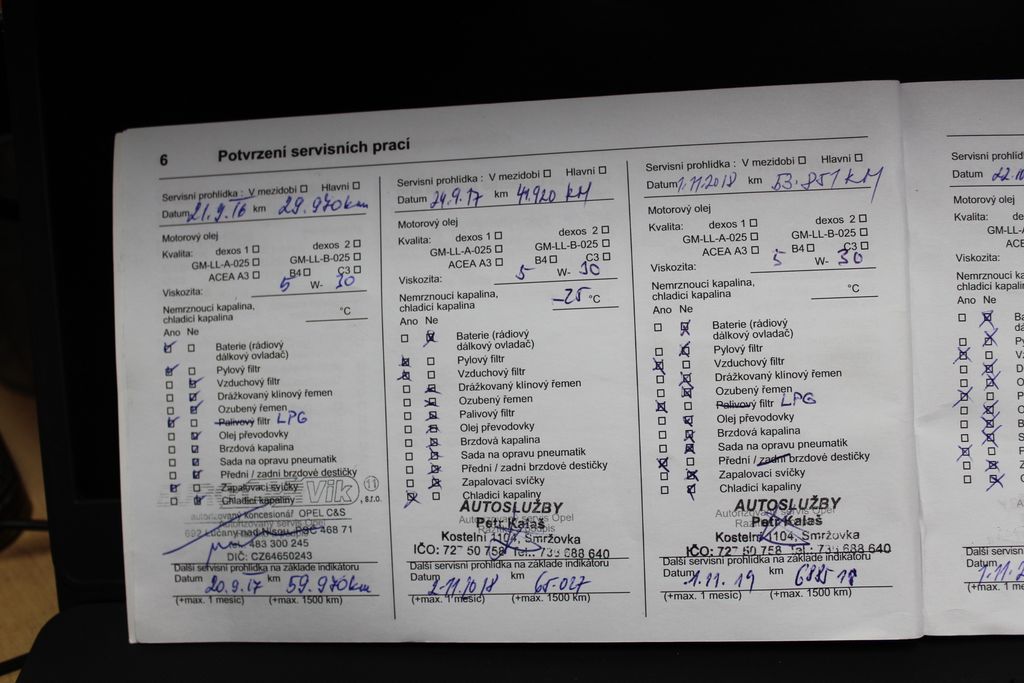 6 Potvrzení servisních prací
Servisní prohlídka : V mezidobí Hlavní
Datum 21.9.16 km 29.970km
Motorový olej
Kvalita: dexos 1 dexos 2
GM-LL-A-025 GM-LL-B-025
ACEA A3 B4 C3
Viskozita: 5 W- 30
Nemrznoucí kapalina,
chladicí kapalina °C
Ano Ne
Baterie (rádiový
dálkový ovladač)
Pylový filtr
Vzduchový filtr
Drážkovaný klínový řemen
Ozubený řemen
Palivový filtr LPG
Olej převodovky
Brzdová kapalina
Sada na opravu pneumatik
Přední / zadní brzdové destičky
Zapalovací svíčky
Chladicí kapaliny
Vik 11 , s.r.o.
autorizovaný koncesionář OPEL C&S
Lučany nad Nisou, PSČ 468 71
tel. 483 300 245
DIČ: CZ64650243
Další servisní prohlídka na základě indikátoru
Datum 20.9.17 km 59.970km
(+max. 1 měsíc) (+max. 1500 km)
Servisní prohlídka : V mezidobí Hlavní
Datum 24.9.17 km 41.920 KM
Motorový olej
Kvalita: dexos 1 dexos 2
GM-LL-A-025 GM-LL-B-025
ACEA A3 B4 C3
Viskozita: 5 W- 30
Nemrznoucí kapalina,
chladicí kapalina -25 °C
Ano Ne
Baterie (rádiový
dálkový ovladač)
Pylový filtr
Vzduchový filtr
Drážkovaný klínový řemen
Ozubený řemen
Palivový filtr
Olej převodovky
Brzdová kapalina
Sada na opravu pneumatik
Přední / zadní brzdové destičky
Zapalovací svíčky
Chladicí kapaliny
AUTOSLUŽBY
Autorizovaný servis Opel
Petr Kalaš
Kostelní 1104, Smržovka
IČO: 727 50 758 Tel.: 736 688 640
Další servisní prohlídka na základě indikátoru
Datum km 65.027
(+max. 1 měsíc) (+max. 1500 km)
Servisní prohlídka : V mezidobí Hlavní
Datum 1.11.2018 km 53.851 KM
Motorový olej
Kvalita: dexos 1 dexos 2
GM-LL-A-025 GM-LL-B-025
ACEA A3 B4 C3
Viskozita: 5 W- 30
Nemrznoucí kapalina,
chladicí kapalina °C
Ano Ne
Baterie (rádiový
dálkový ovladač)
Pylový filtr
Vzduchový filtr
Drážkovaný klínový řemen
Ozubený řemen
Palivový filtr LPG
Olej převodovky
Brzdová kapalina
Sada na opravu pneumatik
Přední / zadní brzdové destičky
Zapalovací svíčky
Chladicí kapaliny
AUTOSLUŽBY
Autorizovaný servis Opel
Petr Kalaš
Kostelní 1104, Smržovka
IČO: 727 50 758 Tel.: 736 688 640
Další servisní prohlídka na základě indikátoru
Datum 1.11.19 km
(+max. 1 měsíc) (+max. 1500 km)
Servisní prohlíd
Datum
Motorový olej
Kvalita:
GM-LL-A
ACE
Viskozita:
Nemrznoucí kap
chladicí kapalina
Ano Ne
Další servisní
Datum
(+max. 1 m